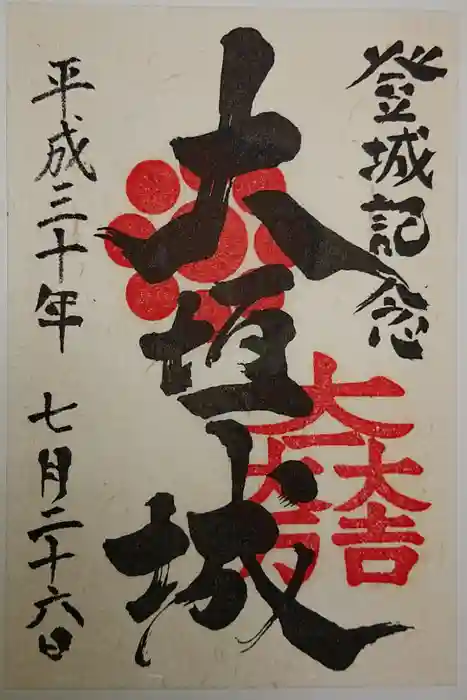 登城記念
大垣城
大一大万大吉
平成三十年 七月二十六日